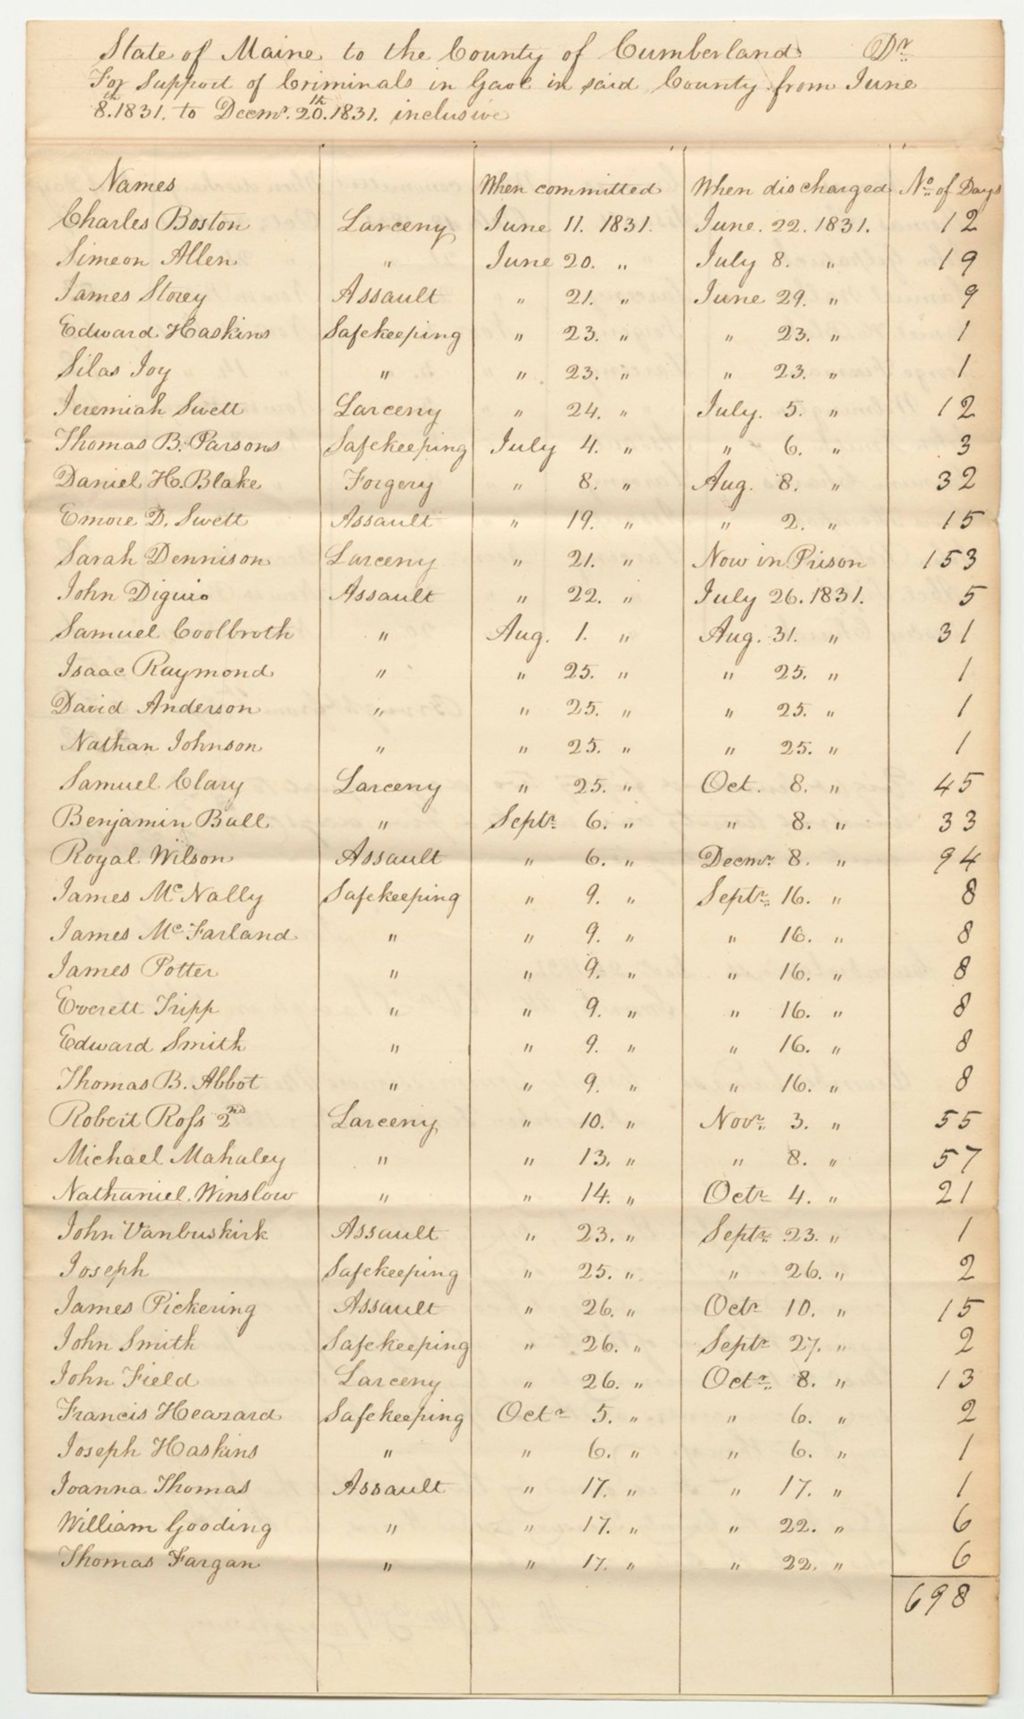 State of Maine to the County of Cumberland Dr.
For Support of Criminals in Gaol in said County from June
8th. 1831. to Decmr. 20th. 1831. inclusive
Names When committed When discharged No. of Days
Charles Boston Larceny June 11. 1831. June. 22. 1831. 12
Simeon Allen " June 20. " July 8. " 19
James Storey Assault " 21. " June 29. " 9
Edward Haskins Safekeeping " 23. " " 23. " 1
Silas Joy " " 23. " " 23. " 1
Jeremiah Swett Larceny " 24. " July. 5. " 12
Thomas B. Parsons Safekeeping July 4. " " 6. " 3
Daniel H. Blake Forgery " 8. " Aug. 8. " 32
Emore D. Swett Assault " 19. " " 2. " 15
Sarah Dennison Larceny " 21. " Now in Prison 153
John Diguio Assault " 22. " July 26. 1831. 5
Samuel Coolbroth " Aug. 1. " Aug. 31. " 31
Isaac Raymond " " 25. " " 25. " 1
David Anderson " " 25. " " 25. " 1
Nathan Johnson " " 25. " " 25. " 1
Samuel Clary Larceny " 25. " Oct. 8. " 45
Benjamin Ball " Septr. 6. " " 8. " 33
Royal Wilson Assault " 6. " Decmr. 8. " 94
James McNally Safekeeping " 9. " Septr. 16. " 8
James McFarland " " 9. " " 16. " 8
James Potter " " 9. " " 16. " 8
Everett Tripp " " 9. " " 16. " 8
Edward Smith " " 9. " " 16. " 8
Thomas B. Abbot " " 9. " " 16. " 8
Robert Ross 2nd Larceny " 10. " Novr. 3. " 55
Michael Mahaley " " 13. " " 8. " 57
Nathaniel Winslow " " 14. " Octr. 4. " 21
John Vanbuskirk Assault " 23. " Septr. 23. " 1
Joseph Safekeeping " 25. " " 26. " 2
James Pickering Assault " 26. " Octr 10. " 15
John Smith Safekeeping " 26. " Septr 27. " 2
John Field Larceny " 26. " Octr. 8. " 13
Francis Hearard Safekeeping Octr 5. " " 6. " 2
Joseph Haskins " " 6. " " 6. " 1
Joanna Thomas Assault " 17. " " 17. " 1
William Gooding " " 17. " " 22. " 6
Thomas Fargan " " 17. " " 22. " 6
698